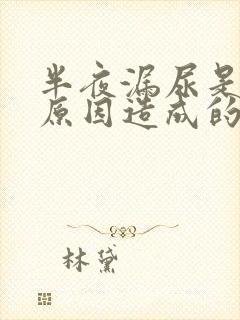 半夜漏尿是
原因造成的
林黛